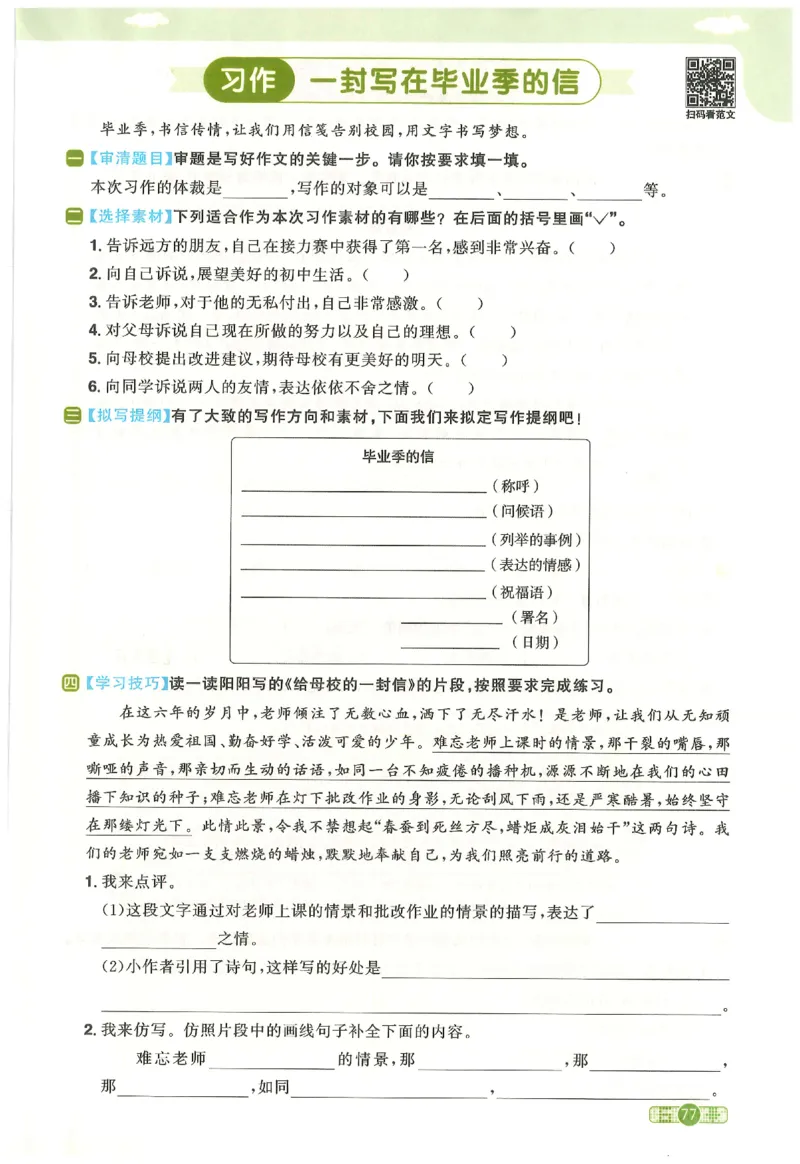 习作 一封写在毕业季的信
扫码看范文
毕业季,书信传情,让我们用信笺告别校园,用文字书写梦想。
一【审清题目】审题是写好作文的关键一步。请你按要求填一填。
本次习作的体裁是________,写作的对象可以是________、________、________等。
二【选择素材】下列适合作为本次习作素材的有哪些?在后面的括号里画“✓”。
1.告诉远方的朋友,自己在接力赛中获得了第一名,感到非常兴奋。( )
2.向自己诉说,展望美好的初中生活。( )
3.告诉老师,对于他的无私付出,自己非常感激。( )
4.对父母诉说自己现在所做的努力以及自己的理想。( )
5.向母校提出改进建议,期待母校有更美好的明天。( )
6.向同学诉说两人的友情,表达依依不舍之情。( )
三【拟写提纲】有了大致的写作方向和素材,下面我们来拟定写作提纲吧!
毕业季的信
________(称呼)
________(问候语)
________(列举的事例)
________(表达的情感)
________(祝福语)
________(署名)
________(日期)
四【学习技巧】读一读阳阳写的《给母校的一封信》的片段,按照要求完成练习。
在这六年的岁月中,老师倾注了无数心血,洒下了无尽汗水!是老师,让我们从无知顽
童成长为热爱祖国、勤奋好学、活泼可爱的少年。难忘老师上课时的情景,那干裂的嘴唇,那
嘶哑的声音,那亲切而生动的话语,如同一台不知疲倦的播种机,源源不断地在我们的心田
播下知识的种子;难忘老师在灯下批改作业的身影,无论刮风下雨,还是严寒酷暑,始终坚守
在那缕灯光下。此情此景,令我不禁想起“春蚕到死丝方尽,蜡炬成灰泪始干”这两句诗。我
们的老师宛如一支支燃烧的蜡烛,默默地奉献自己,为我们照亮前行的道路。
1.我来点评。
(1)这段文字通过对老师上课的情景和批改作业的情景的描写,表达了________
________之情。
(2)小作者引用了诗句,这样写的好处是________
________。
2.我来仿写。仿照片段中的画线句子补全下面的内容。
难忘老师________的情景,那________,那________,
那________,如同________,________。
77